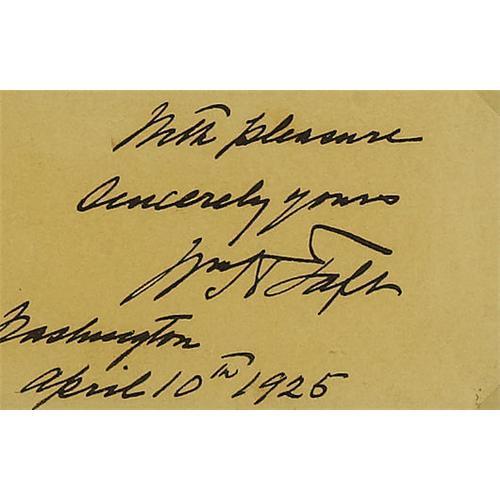 With pleasure
Sincerely yours
Wm H Taft
Washington
April 10th 1925